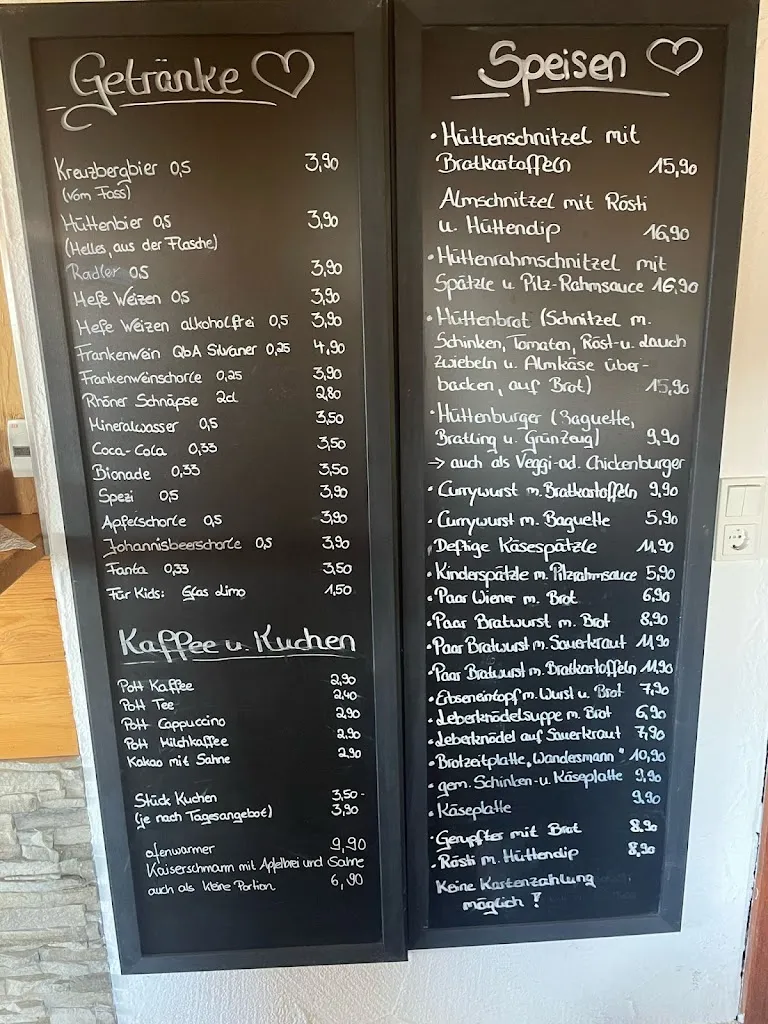 Getränke
Kreuzbergbier 0,5 3,90
(vom Fass)
Hüttenbier 0,5 3,90
(Helles, aus der Flasche)
Radler 0,5 3,90
Hefe Weizen 0,5 3,90
Hefe Weizen alkoholfrei 0,5 3,90
Frankenwein QbA Silvaner 0,25 4,90
Frankenweinschorle 0,25 3,90
Rhöner Schnäpse 2cl 2,80
Mineralwasser 0,5 3,50
Coca-Cola 0,33 3,50
Bionade 0,33 3,50
Spezi 0,5 3,90
Apfelschorle 0,5 3,90
Johannisbeerschorle 0,5 3,90
Fanta 0,33 3,50
Für Kids: Glas Limo 1,50
Kaffee u. Kuchen
Pott Kaffee 2,90
Pott Tee 2,40
Pott Cappuccino 2,90
Pott Milchkaffee 2,90
Kakao mit Sahne 2,90
Stück Kuchen 3,50-
(je nach Tagesangebot) 3,90
ofenwarmer 9,90
Kaiserschmarrn mit Apfelbrei und Sahne
auch als kleine Portion 6,90
Speisen
• Hüttenschnitzel mit
Bratkartoffeln 15,90
Almschnitzel mit Rösti
u. Hüttendip 16,90
• Hüttenrahmschnitzel mit
Spätzle u Pilz-Rahmsauce 16,90
• Hüttenbrot (Schnitzel m.
Schinken, Tomaten, Röst-u. Lauch
zwiebeln u. Almkäse über-
backen, auf Brot) 15,90
• Hüttenburger (Baguette,
Bratling u. Grünzeug) 9,90
→ auch als Veggi-od. Chickenburger
• Currywurst m. Bratkartoffeln 9,90
• Currywurst m. Baguette 5,90
• Deftige Käsespätzle 11,90
• Kinderspätzle m. Pilzrahmsauce 5,90
• Paar Wiener m. Brot 6,90
• Paar Bratwurst m. Brot 8,90
• Paar Bratwurst m. Sauerkraut 11,90
• Paar Bratwurst m. Bratkartoffeln 11,90
• Erbseneintopf m. Wurst u. Brot 7,90
• Leberknödelsuppe m. Brot 6,90
• Leberknödel auf Sauerkraut 7,90
• Brotzeitplatte „Wandersmann" 10,90
• gem. Schinken-u. Käseplatte 9,90
• Käseplatte 9,90
• Gerupfter mit Brot 8,90
• Rösti m. Hüttendip 8,90
Keine Kartenzahlung
möglich !